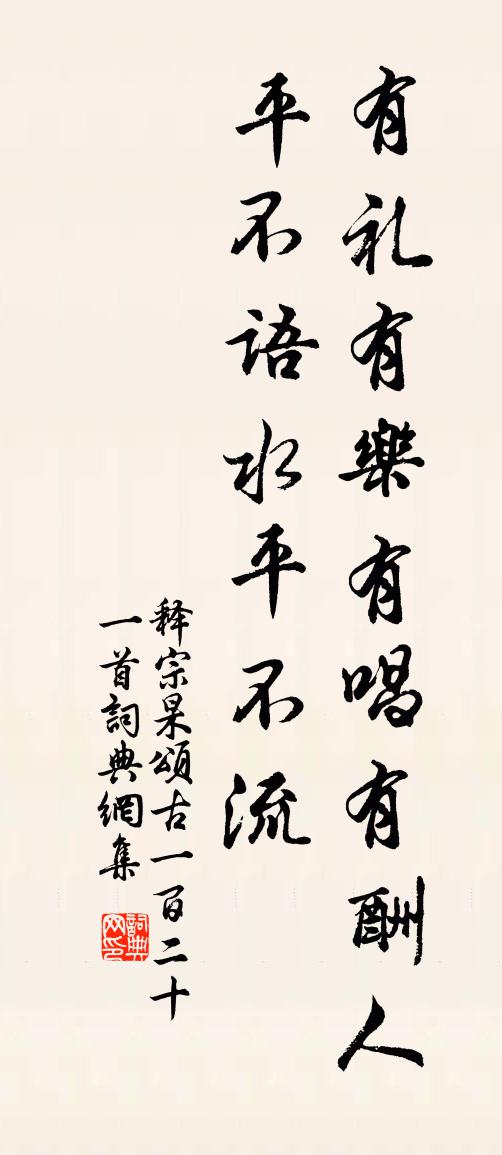 有礼有樂有唱有酬人
平不語水平不流
释宗杲頌古一百二十
一首詞典網集
詞典网印